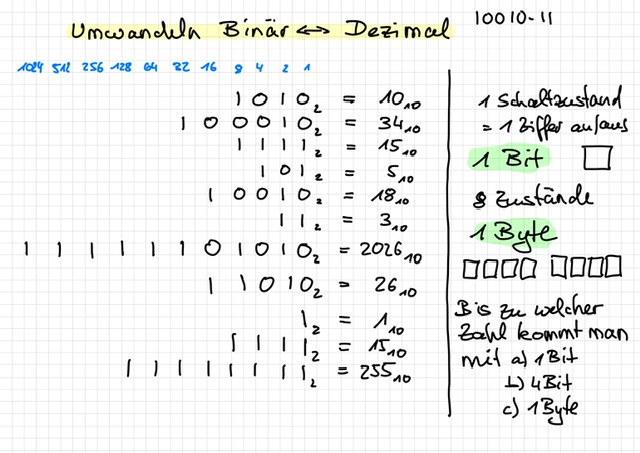 Umwandeln Binär ↔ Dezimal
10010-11
1024 512 256 128 64 32 16 8 4 2 1
1010₂ = 10₁₀
100010₂ = 34₁₀
1111₂ = 15₁₀
101₂ = 5₁₀
10010₂ = 18₁₀
11₂ = 3₁₀
11111101010₂ = 2026₁₀
11010₂ = 26₁₀
1₂ = 1₁₀
1111₂ = 15₁₀
11111111₂ = 255₁₀
1 Schaltzustand
= 1 Ziffer an/aus
1 Bit
8 Zustände
1 Byte
Bis zu welcher
Zahl kommt man
mit a) 1 Bit
b) 4 Bit
c) 1 Byte